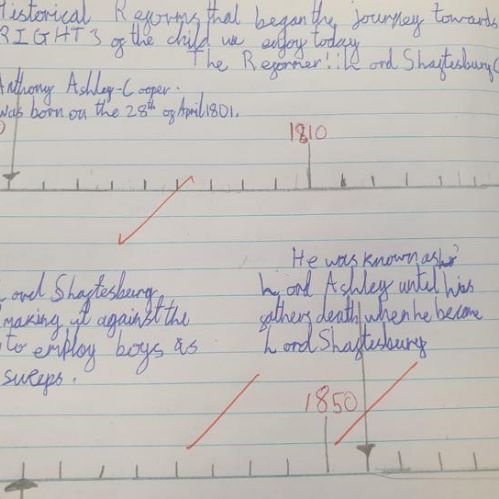 Historical Reforms that began the journey towards
RIGHTS of the child we enjoy today
The Reformer!: Lord Shaftesbury(
Anthony Ashley-Cooper.
was born on the 28th of April 1801.
1810
He was known as
Lord Ashley until his
fathers death when he become
Lord Shaftesbury
Lord Shaftesburg
making it against the
to employ boys as
sweeps.
1850